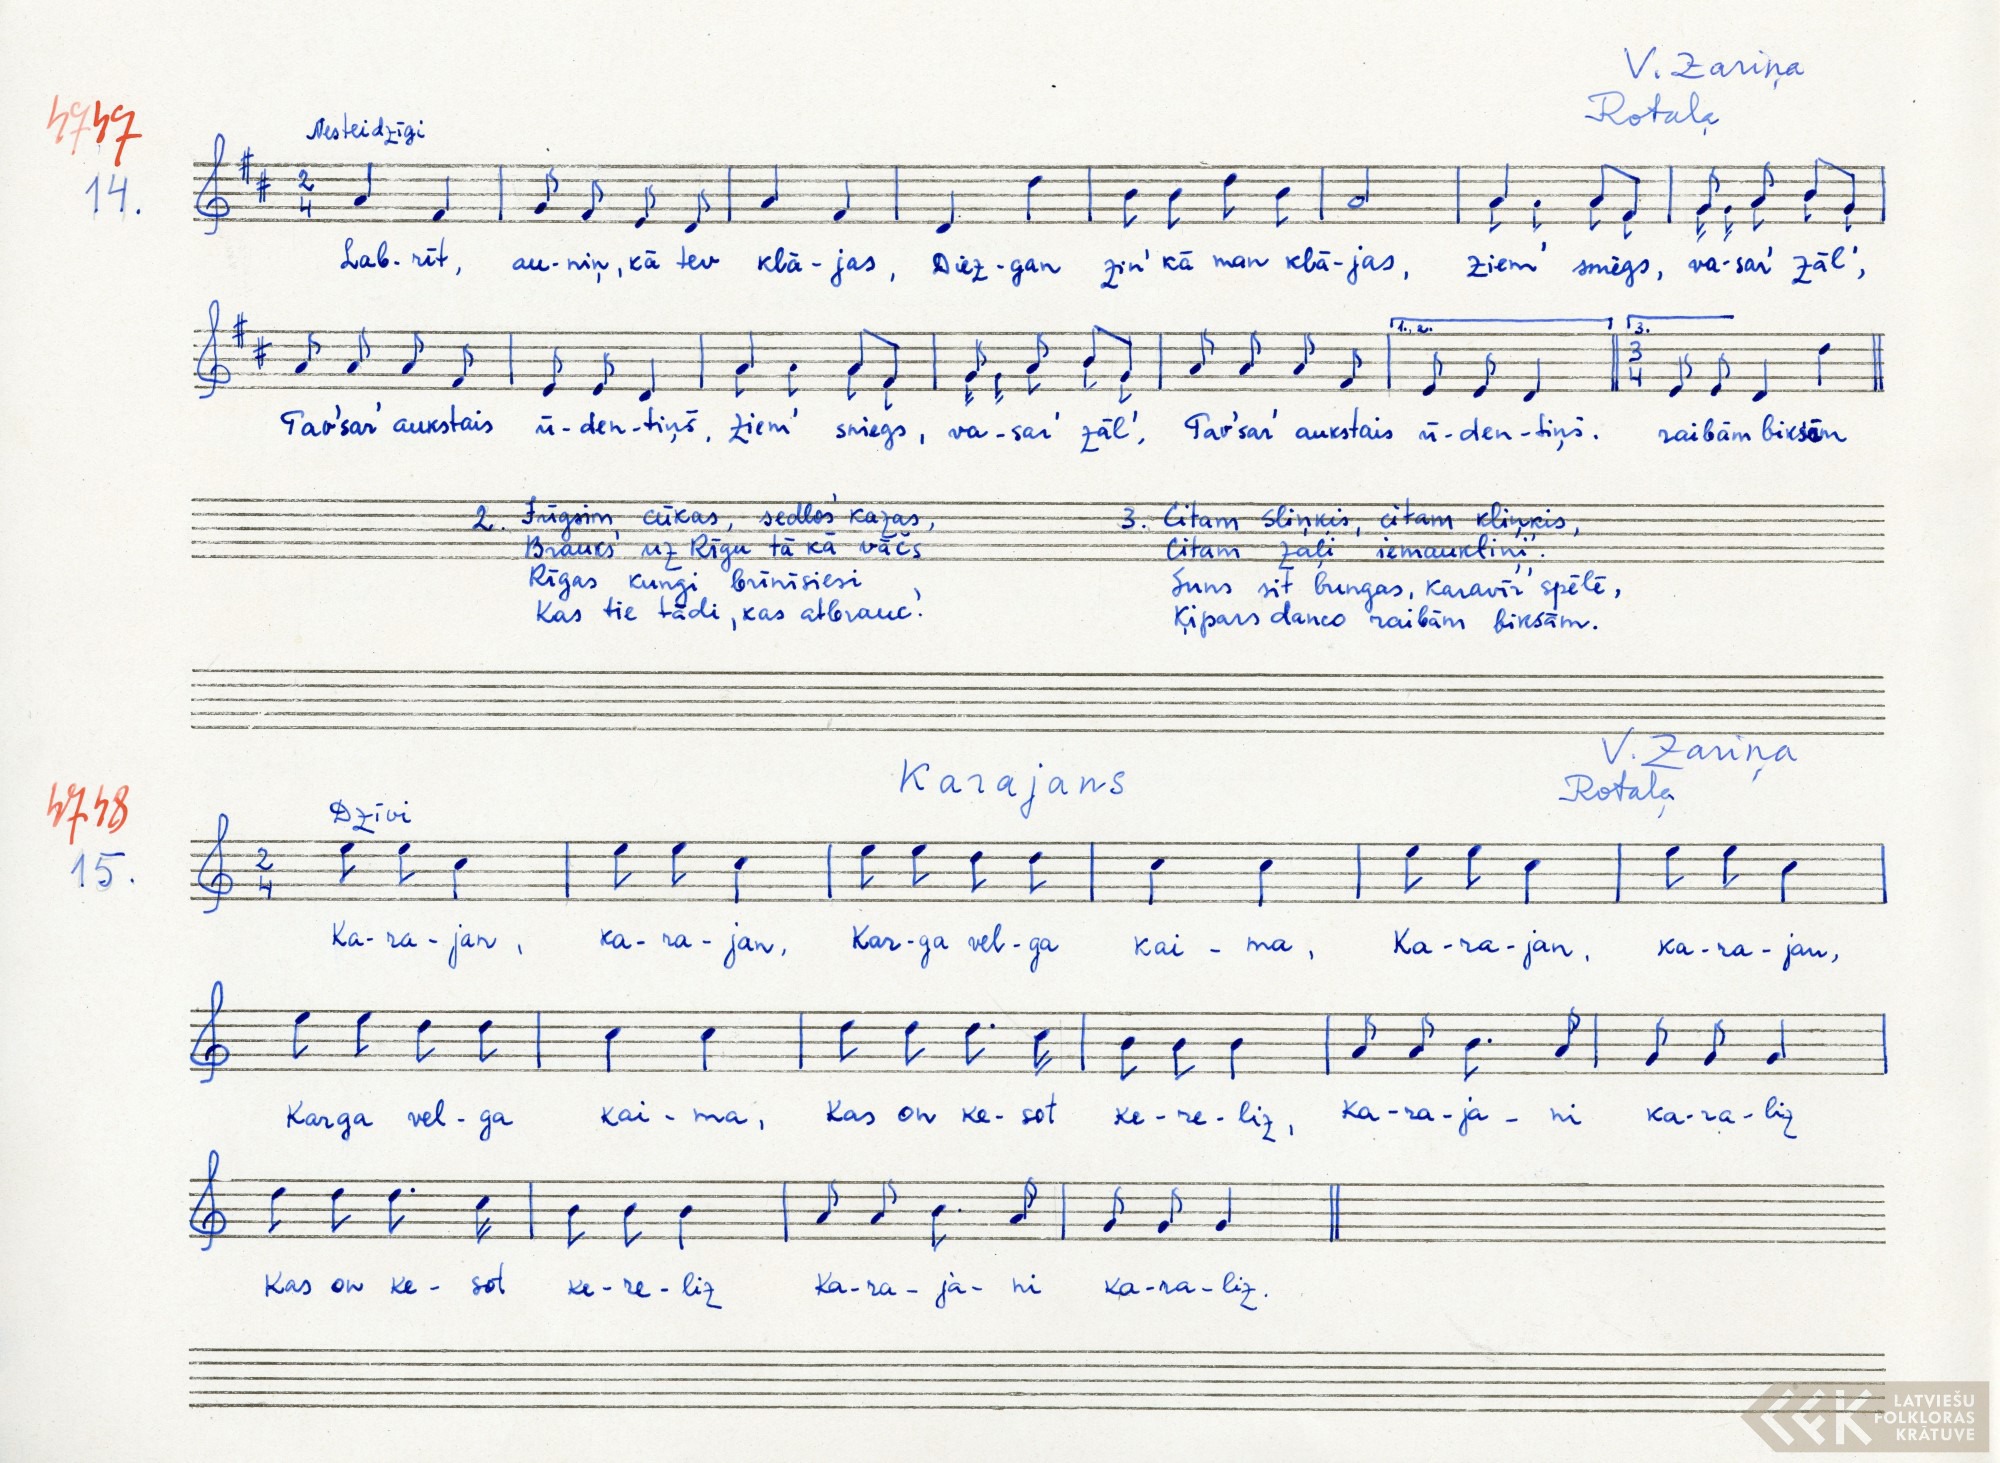 V. Zariņa
Rotaļa
4747
14.
Nesteidzīgi
2/4
Lab-rīt, au-niņ, kā tev klā-jas, Diez-gan zin' kā man klā-jas, Ziem' smēgs, va-sar' zāl',
1., 2.
3.
3/4
Tav'sar' aukstais ū-den-tiņš, Ziem' sniegs, va-sar' zāl', Tav'sar' aukstais ū-den-tiņš. raibām biksēm
2. Jūgsim cūkas, sedlos' kazas,
Brauks' uz Rīgu tā kā vācs
Rīgas kungi brīnīsiesi
Kas tie tādi, kas atbrauc'.
3. Citam sliņķis, citam kliņķis,
Citam zaļi iemauktiņi'.
Suns sit bungas, karavīr' spēlē,
Ķipars danco raibām biksām.
V. Zariņa
Rotaļa
Karajans
4748
15.
Dzīvi
2/4
Ka-ra-jan, ka-ra-jan, Kar-ga vel-ga kai-ma, Ka-ra-jan, ka-ra-jan,
Karga vel-ga kai-ma, Kas on ke-sot ke-re-liz, Ka-ra-ja-ni ka-ra-liz
Kas on ke-sot ke-re-liz Ka-ra-ja-ni ka-ra-liz.
LFK LATVIEŠU
FOLKLORAS
KRĀTUVE